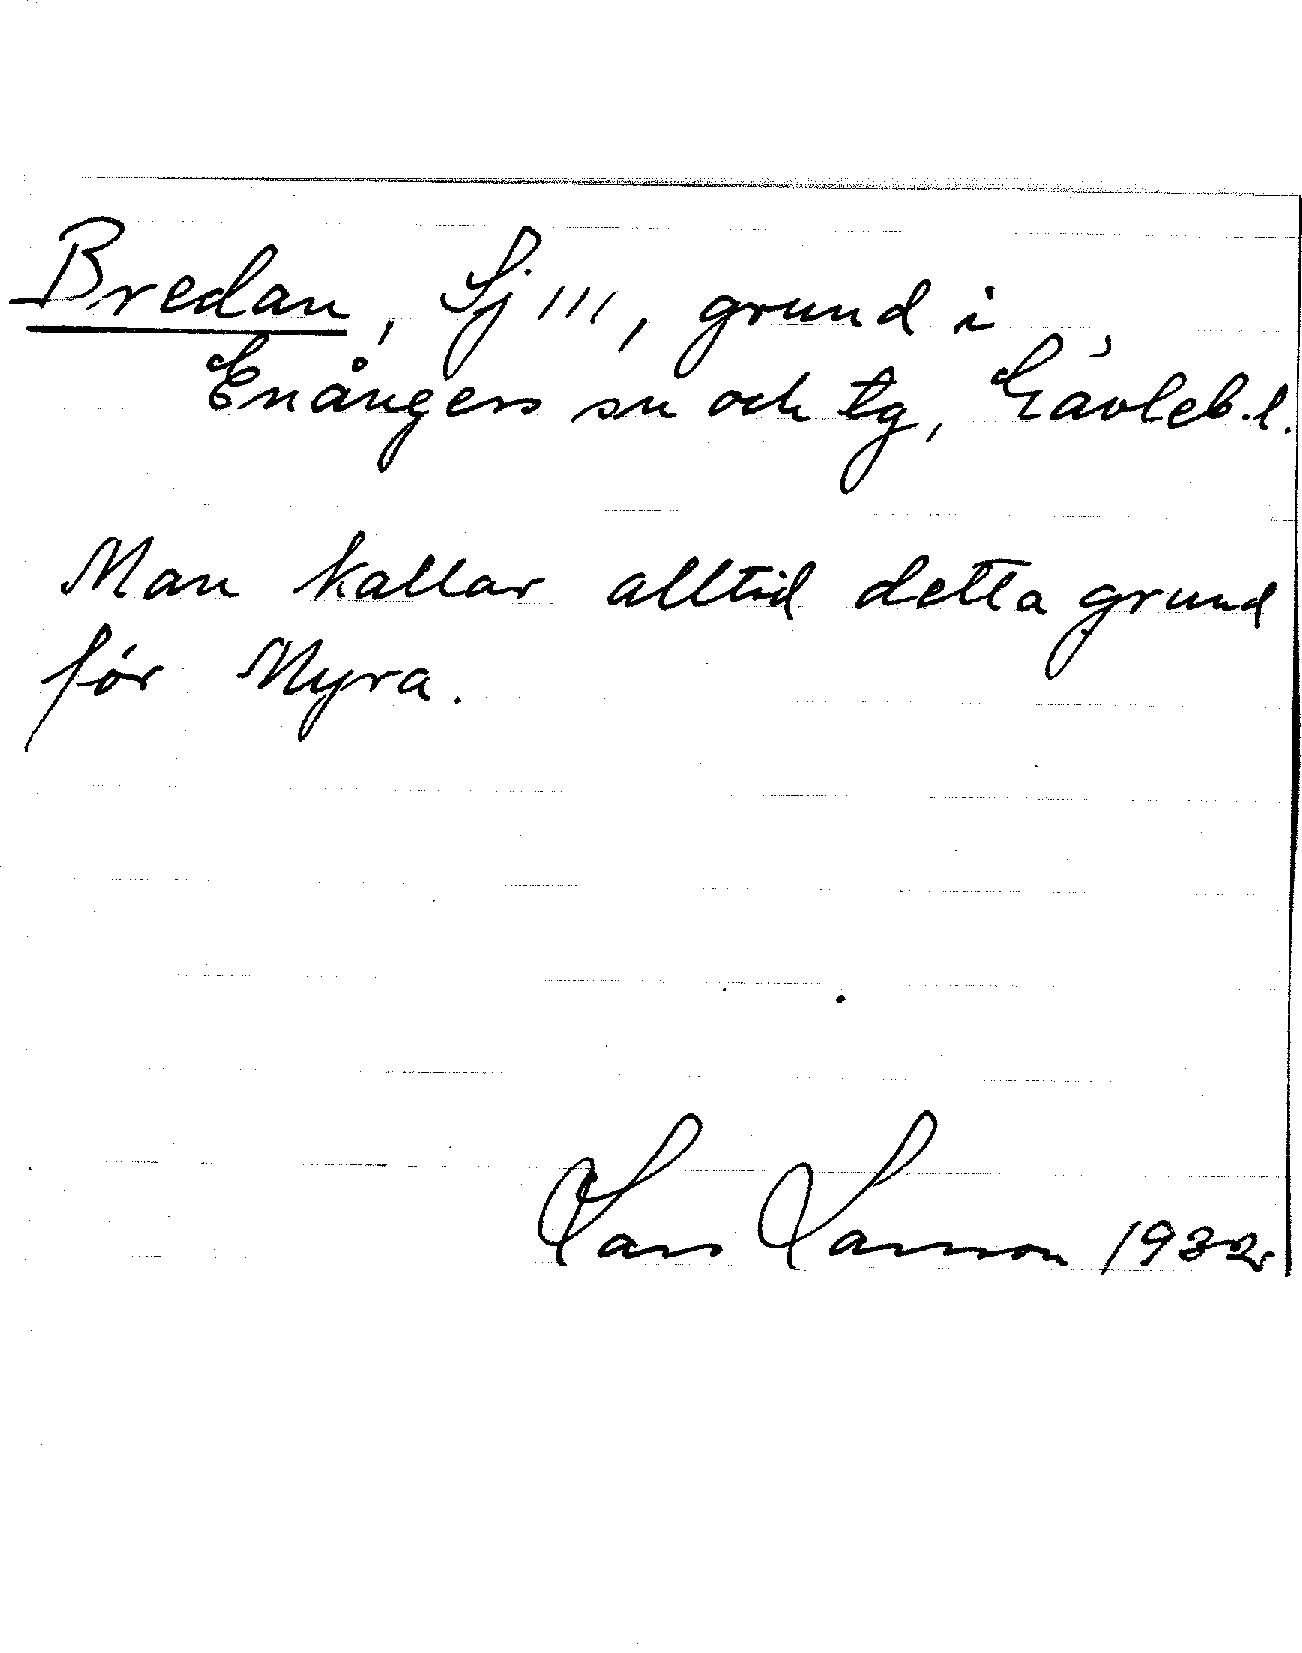 Bredan, Sj III, grund i
Enångers sn och tg, Gävleb.l.
Man kallar alltid detta grund
för Myra.
Lars Larsson 1932